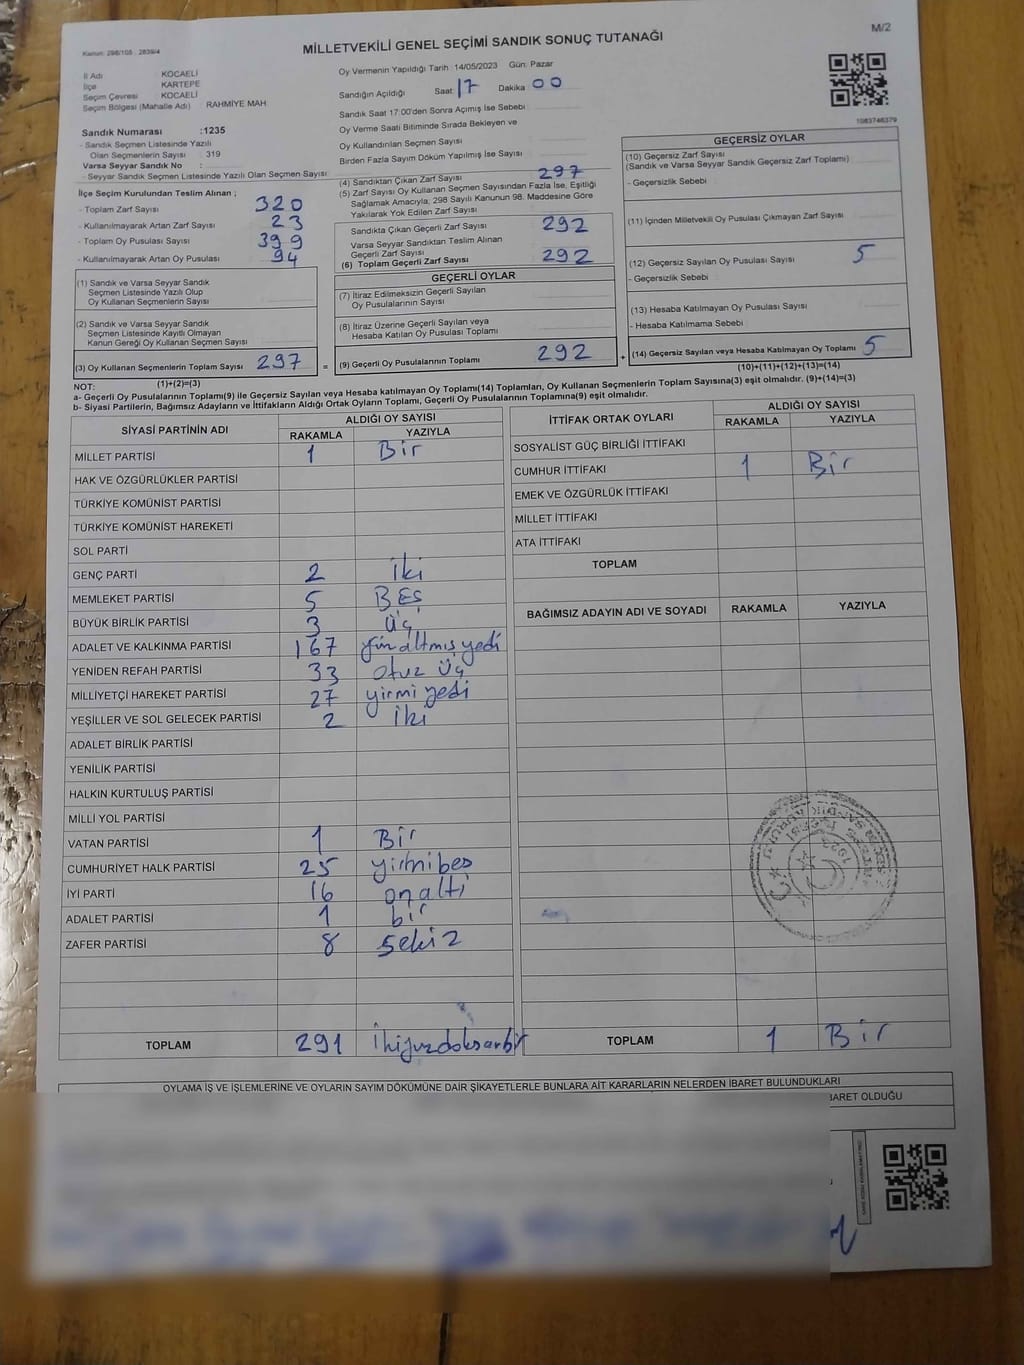 M/2
Kanun: 298/105 . 2839/4
MİLLETVEKİLİ GENEL SEÇİMİ SANDIK SONUÇ TUTANAĞI
İl Adı : KOCAELİ
İlçe : KARTEPE
Seçim Çevresi : KOCAELİ
Seçim Bölgesi (Mahalle Adı) : RAHMİYE MAH
Oy Vermenin Yapıldığı Tarih :14/05/2023 Gün: Pazar
Sandığın Açıldığı Saat 17 Dakika 00
Sandık Saat 17:00'den Sonra Açımış İse Sebebi :
Oy Verme Saati Bitiminde Sırada Bekleyen ve
Oy Kullandırılan Seçmen Sayısı
Birden Fazla Sayım Döküm Yapılmış İse Sayısı
1083746379
Sandık Numarası :1235
- Sandık Seçmen Listesinde Yazılı
Olan Seçmenlerin Sayısı : 319
Varsa Seyyar Sandık No :
- Seyyar Sandık Seçmen Listesinde Yazılı Olan Seçmen Sayısı
İlçe Seçim Kurulundan Teslim Alınan ;
- Toplam Zarf Sayısı 320
- Kullanılmayarak Artan Zarf Sayısı 23
- Toplam Oy Pusulası Sayısı 399
- Kullanılmayarak Artan Oy Pusulası 94
(1) Sandık ve Varsa Seyyar Sandık
Seçmen Listesinde Yazılı Olup
Oy Kullanan Seçmenlerin Sayısı
(2) Sandık ve Varsa Seyyar Sandık
Seçmen Listesinde Kayıtlı Olmayan
Kanun Gereği Oy Kullanan Seçmen Sayısı
(3) Oy Kullanan Seçmenlerin Toplam Sayısı 297
(1)+(2)=(3)
(4) Sandıktan Çıkan Zarf Sayısı 297
(5) Zarf Sayısı Oy Kullanan Seçmen Sayısından Fazla İse, Eşitliği
Sağlamak Amacıyla; 298 Sayılı Kanunun 98. Maddesine Göre
Yakılarak Yok Edilen Zarf Sayısı
Sandıkta Çıkan Geçerli Zarf Sayısı 292
Varsa Seyyar Sandıktan Teslim Alınan
Geçerli Zarf Sayısı
(6) Toplam Geçerli Zarf Sayısı 292
GEÇERLİ OYLAR
(7) İtiraz Edilmeksizin Geçerli Sayılan
Oy Pusulalarının Sayısı
(8) İtiraz Üzerine Geçerli Sayılan veya
Hesaba Katılan Oy Pusulası Toplamı
(9) Geçerli Oy Pusulalarının Toplamı 292
= +
GEÇERSİZ OYLAR
(10) Geçersiz Zarf Sayısı
(Sandık ve Varsa Seyyar Sandık Geçersiz Zarf Toplamı)
- Geçersizlik Sebebi
(11) İçinden Milletvekili Oy Pusulası Çıkmayan Zarf Sayısı
(12) Geçersiz Sayılan Oy Pusulası Sayısı 5
- Geçersizlik Sebebi
(13) Hesaba Katılmayan Oy Pusulası Sayısı
- Hesaba Katılmama Sebebi
(14) Geçersiz Sayılan veya Hesaba Katılmayan Oy Toplamı 5
(10)+(11)+(12)+(13)=(14)
NOT:
a- Geçerli Oy Pusulalarının Toplamı(9) ile Geçersiz Sayılan veya Hesaba katılmayan Oy Toplamı(14) Toplamları, Oy Kullanan Seçmenlerin Toplam Sayısına(3) eşit olmalıdır. (9)+(14)=(3)
b- Siyasi Partilerin, Bağımsız Adayların ve İttifakların Aldığı Ortak Oyların Toplamı, Geçerli Oy Pusulalarının Toplamına(9) eşit olmalıdır.
SİYASİ PARTİNİN ADI ALDIĞI OY SAYISI
RAKAMLA YAZIYLA
MİLLET PARTİSİ 1 Bir
HAK VE ÖZGÜRLÜKLER PARTİSİ
TÜRKİYE KOMÜNİST PARTİSİ
TÜRKİYE KOMÜNİST HAREKETİ
SOL PARTİ
GENÇ PARTİ 2 iki
MEMLEKET PARTİSİ 5 BEŞ
BÜYÜK BİRLİK PARTİSİ 3 üç
ADALET VE KALKINMA PARTİSİ 167 yüzaltmış yedi
YENİDEN REFAH PARTİSİ 33 otuz üç
MİLLİYETÇİ HAREKET PARTİSİ 27 yirmi yedi
YEŞİLLER VE SOL GELECEK PARTİSİ 2 iki
ADALET BİRLİK PARTİSİ
YENİLİK PARTİSİ
HALKIN KURTULUŞ PARTİSİ
MİLLİ YOL PARTİSİ
VATAN PARTİSİ 1 Bir
CUMHURİYET HALK PARTİSİ 25 yirmibeş
İYİ PARTİ 16 onaltı
ADALET PARTİSİ 1 bir
ZAFER PARTİSİ 8 sekiz
TOPLAM 291 ikiyüzdoksanbir
İTTİFAK ORTAK OYLARI ALDIĞI OY SAYISI
RAKAMLA YAZIYLA
SOSYALİST GÜÇ BİRLİĞİ İTTİFAKI
CUMHUR İTTİFAKI 1 Bir
EMEK VE ÖZGÜRLÜK İTTİFAKI
MİLLET İTTİFAKI
ATA İTTİFAKI
TOPLAM
BAĞIMSIZ ADAYIN ADI VE SOYADI RAKAMLA YAZIYLA
TOPLAM 1 Bir
OYLAMA İŞ VE İŞLEMLERİNE VE OYLARIN SAYIM DÖKÜMÜNE DAİR ŞİKAYETLERLE BUNLARA AİT KARARLARIN NELERDEN İBARET BULUNDUKLARI
BARET OLDUĞU